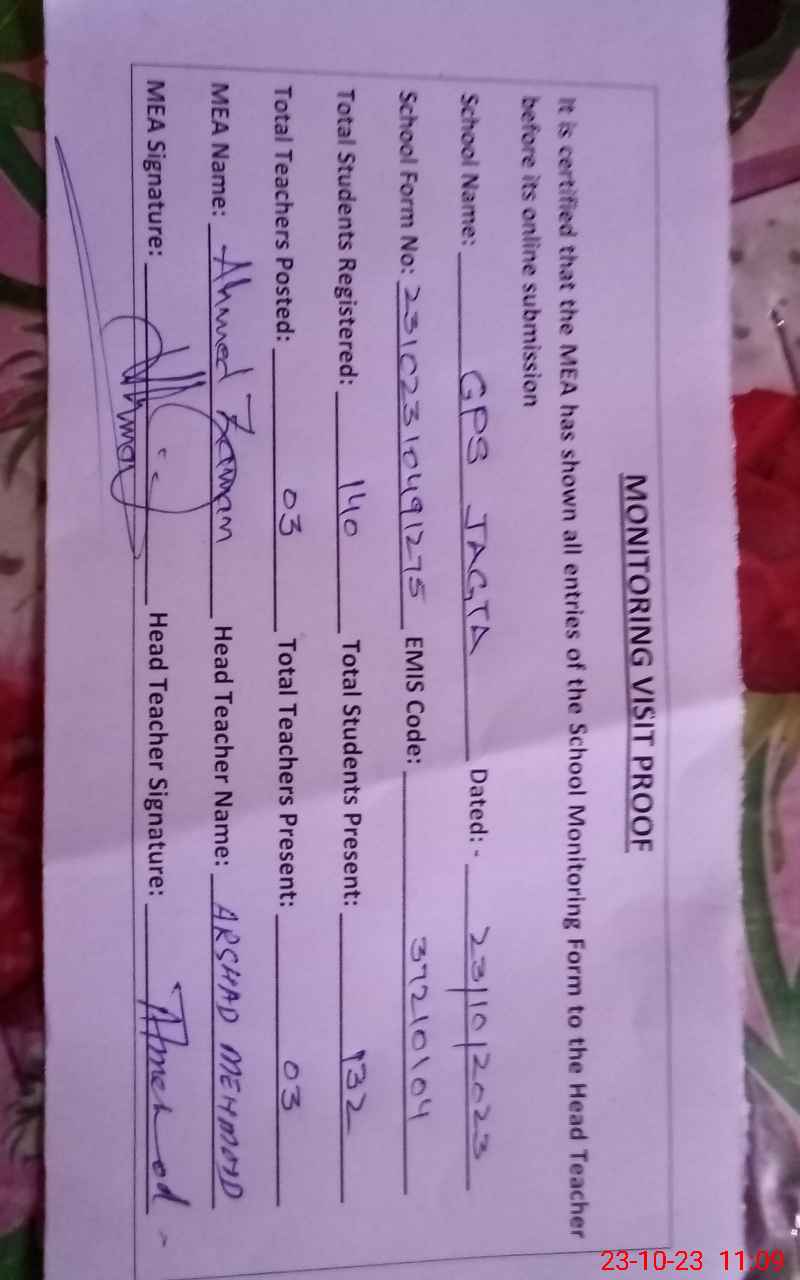 MONITORING VISIT PROOF
It is certified that the MEA has shown all entries of the School Monitoring Form to the Head Teacher
before its online submission
School Name: GPS JAGTA Dated: - 23/10/2023
School Form No: 23102310491275 EMIS Code: 37210104
Total Students Registered: 140 Total Students Present: 132
Total Teachers Posted: 03 Total Teachers Present: 03
MEA Name: Ahmed Zaman Head Teacher Name: ARSHAD MEHMOOD
MEA Signature: Head Teacher Signature:
23-10-23 11:09